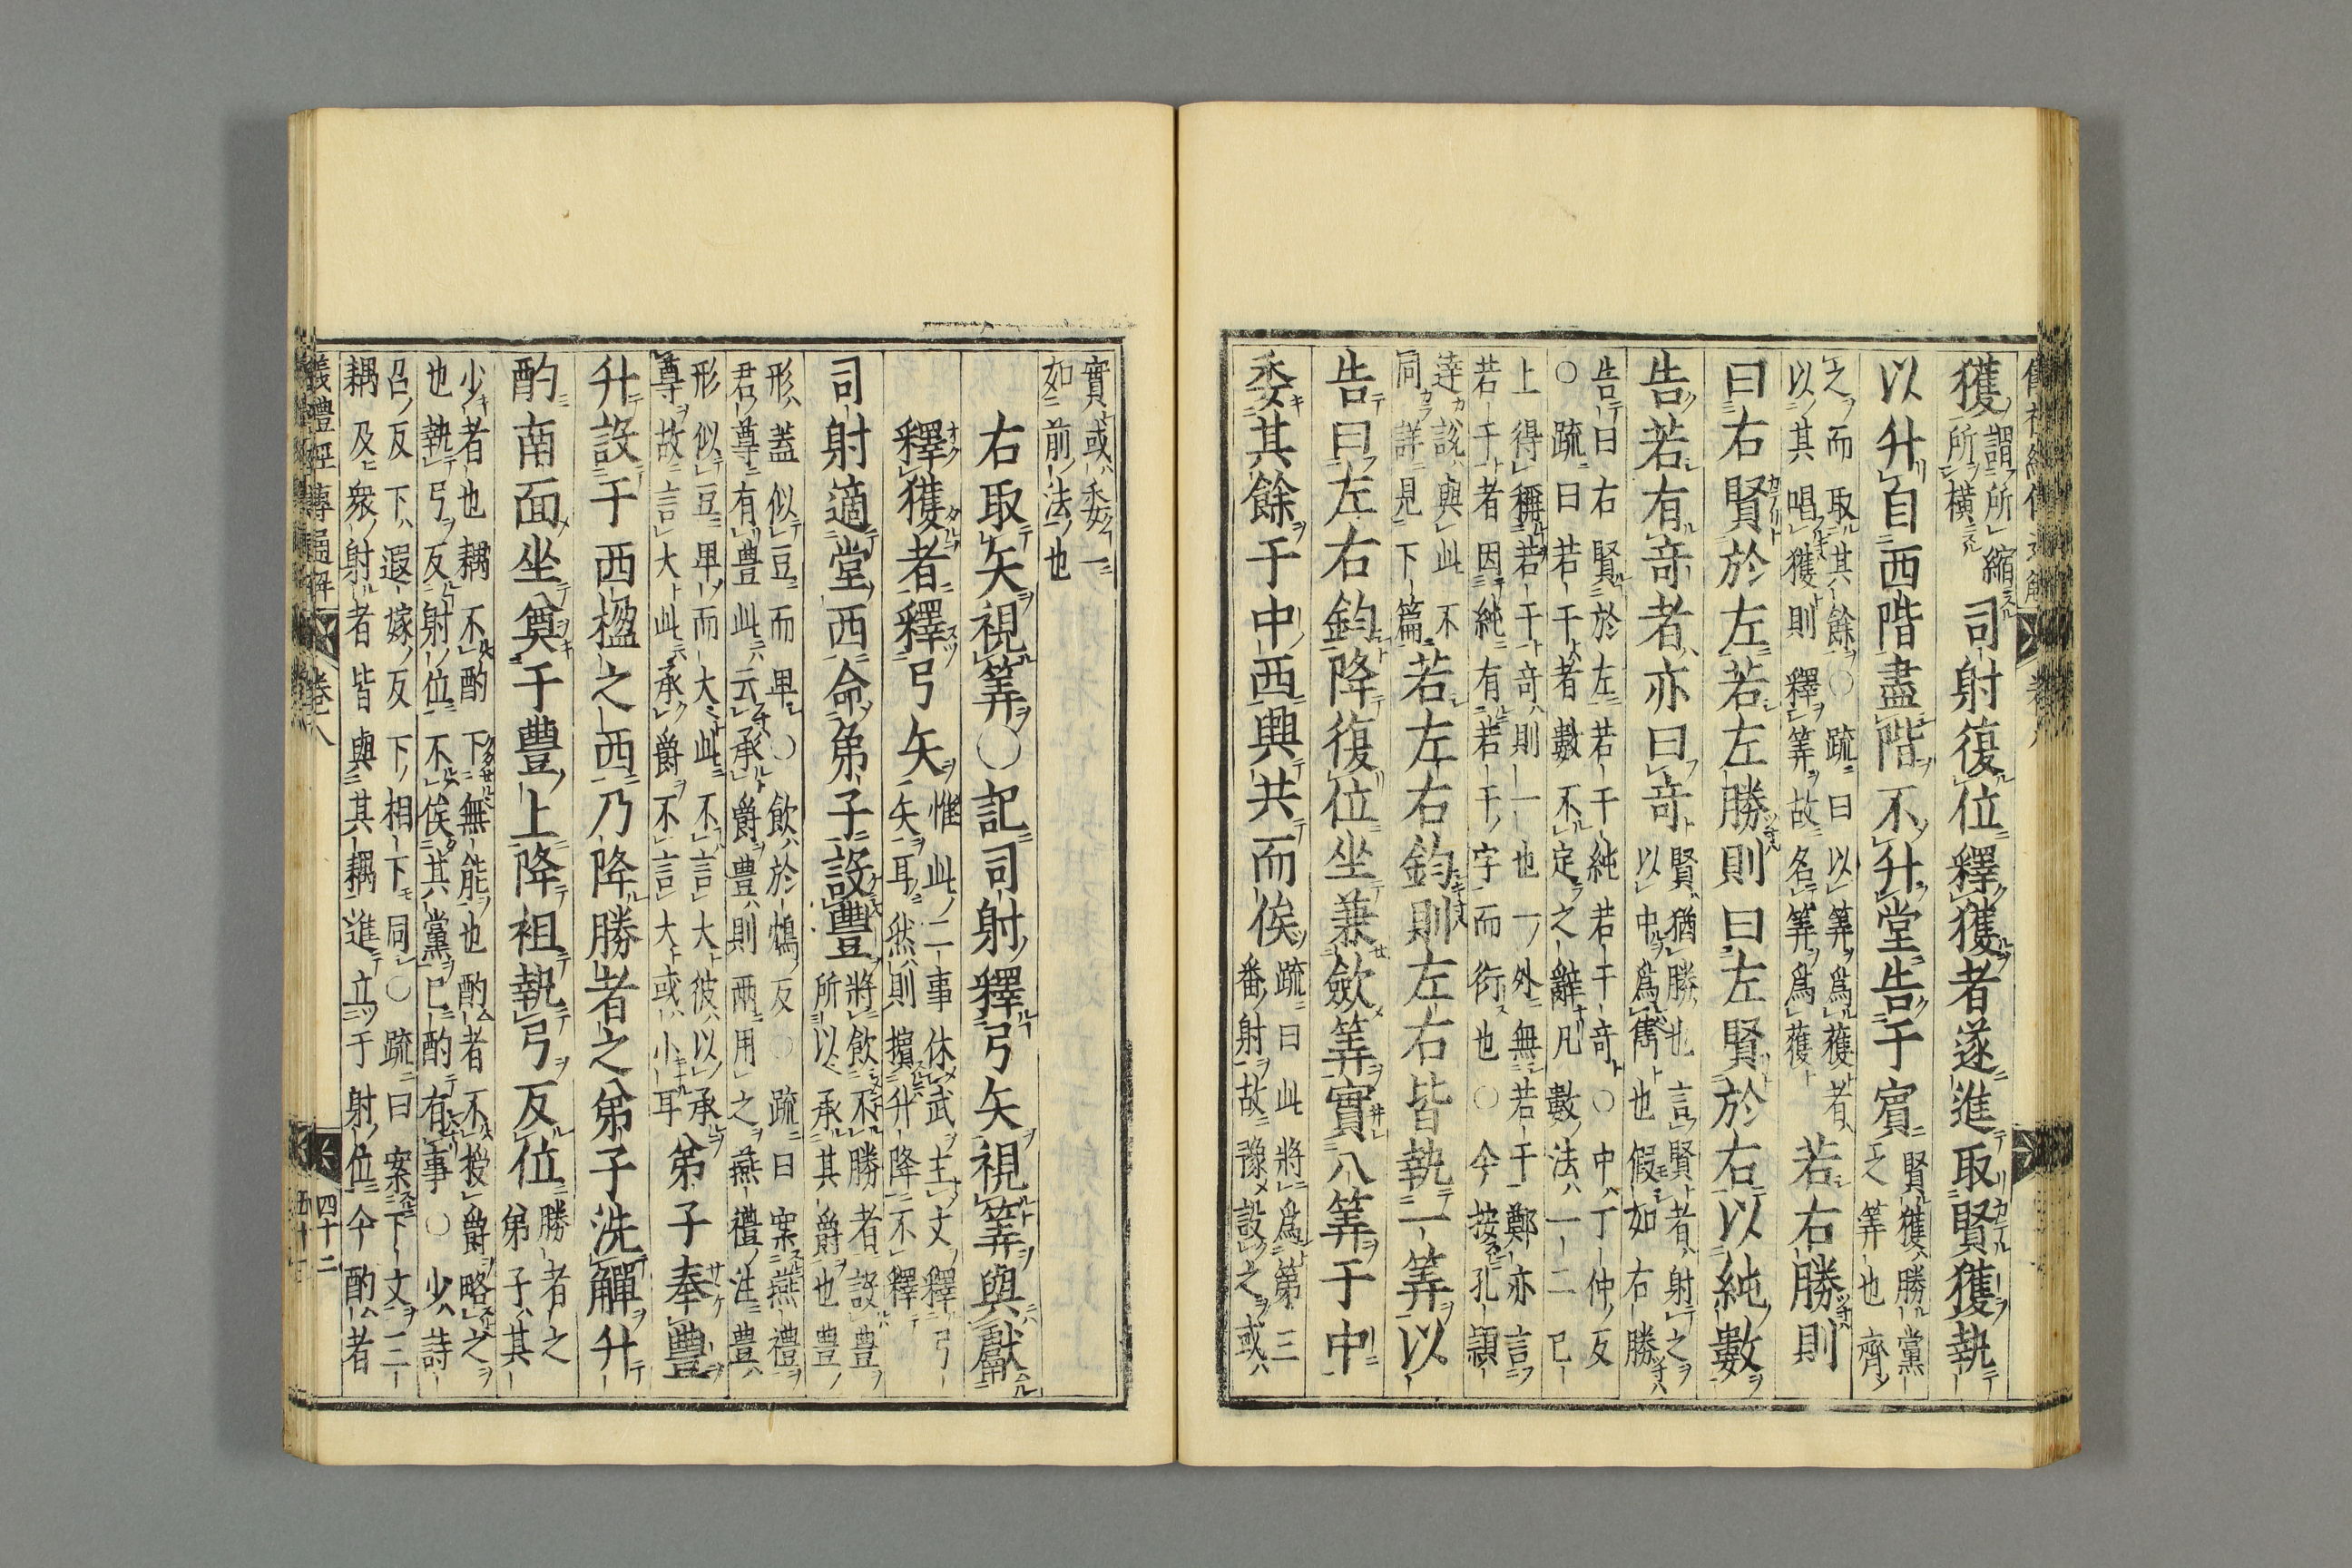 獲謂所縮所橫司射復位釋獲者遂進取賢獲執
以升自西階盡階不升堂告于賓賢獲勝黨之筭也齊
之而取其餘○疏曰以筭爲獲者以其唱獲則釋筭故名筭爲獲若右勝則
曰右賢於左若左勝則曰左賢於右以純數
告若有竒者亦曰竒賢猶勝也言賢者射之以中爲雋也假如右勝
告曰右賢於左若干純若干竒○中丁仲反○疏曰若干者數不定之辭凡數法一二已
上得稱若干竒則一也一外無若干鄭亦言若干者因純有若干字而衍也○今按孔頴
達說與此不同詳見下篇若左右鈞則左右皆執一筭以
告曰左右鈞降復位坐兼斂筭實八筭于中
委其餘于中西興共而俟疏曰此將爲第三番射故豫設之或
實或委一如前法也
右取矢視筭○記司射釋弓矢視筭與獻
釋獲者釋弓矢惟此二事休武主文釋弓矢耳然則擯升降不釋
司射適堂西命弟子設豐將飮不勝者設豐所以承其爵也豐
形蓋似豆而卑○飮於鴆反○疏曰案燕禮君尊有豐此云承爵豐則兩用之燕禮注豐
形似豆卑而大此不言大彼以承尊故言大此承爵不言大或小耳弟子奉豐
升設于西楹之西乃降勝者之弟子洗觶升
酌南面坐奠于豐上降袒執弓反位勝者之弟子其
少者也耦不酌下無能也酌者不授爵略之也執弓反射位不俟其黨已酌有事○少詩
召反下遐嫁反下相下同○疏曰案下文三耦及衆射者皆與其耦進立于射位今酌者
儀禮經傳通解 卷八 四十二